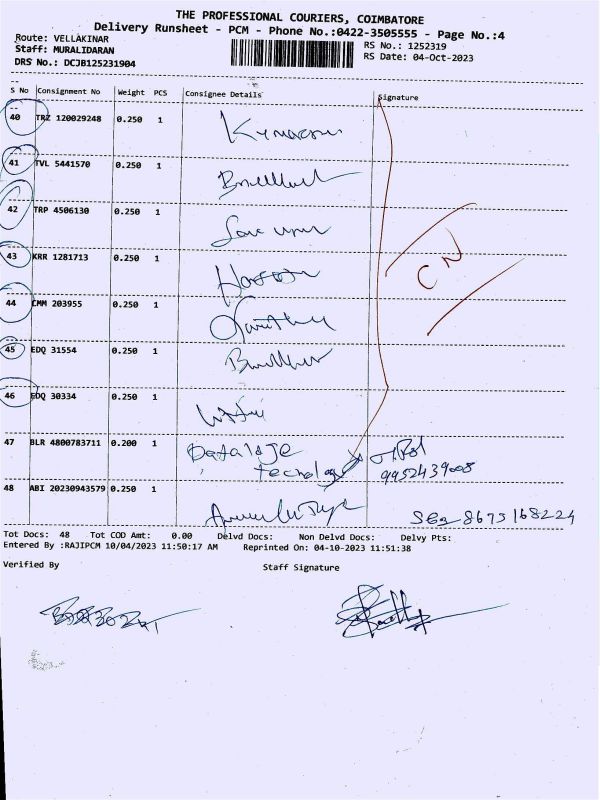 THE PROFESSIONAL COURIERS, COIMBATORE
Delivery Runsheet - PCM - Phone No.:0422-3505555 - Page No.:4
Route: VELLAKINAR
RS No.: 1252319
Staff: MURALIDARAN
RS Date: 04-Oct-2023
DRS No.: DCJB125231904
S No Consignment No Weight PCS Consignee Details Signature
40 TRZ 120029248 0.250 1
41 TVL 5441570 0.250 1
42 TRP 4506130 0.250 1
43 KRR 1281713 0.250 1
CN
44 CMM 203955 0.250 1
45 EDQ 31554 0.250 1
46 EDQ 30334 0.250 1
47 BLR 4800783711 0.200 1
9952439008
48 ABI 20230943579 0.250 1
8675168224
Tot Docs: 48 Tot COD Amt: 0.00 Delvd Docs: Non Delvd Docs: Delvy Pts:
Entered By :RAJIPCM 10/04/2023 11:50:17 AM Reprinted On: 04-10-2023 11:51:38
Verified By Staff Signature